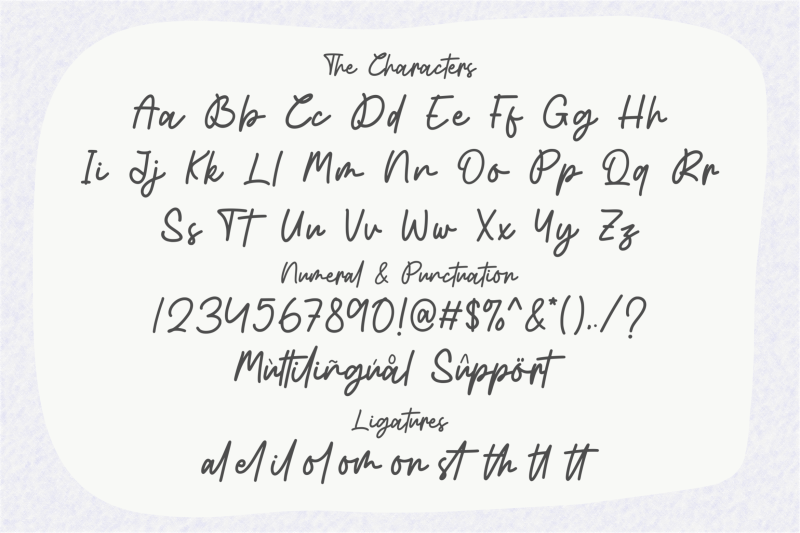 The Characters
Aa Bb Cc Dd Ee Ff Gg Hh
Ii Jj Kk Ll Mm Nn Oo Pp Qq Rr
Ss Tt Uu Vv Ww Xx Yy Zz
Numeral & Punctuation
1234567890!@#$%^&*()../?
Mùttilingúål Sûppört
Ligatures
al el il ol om on st th tl tt